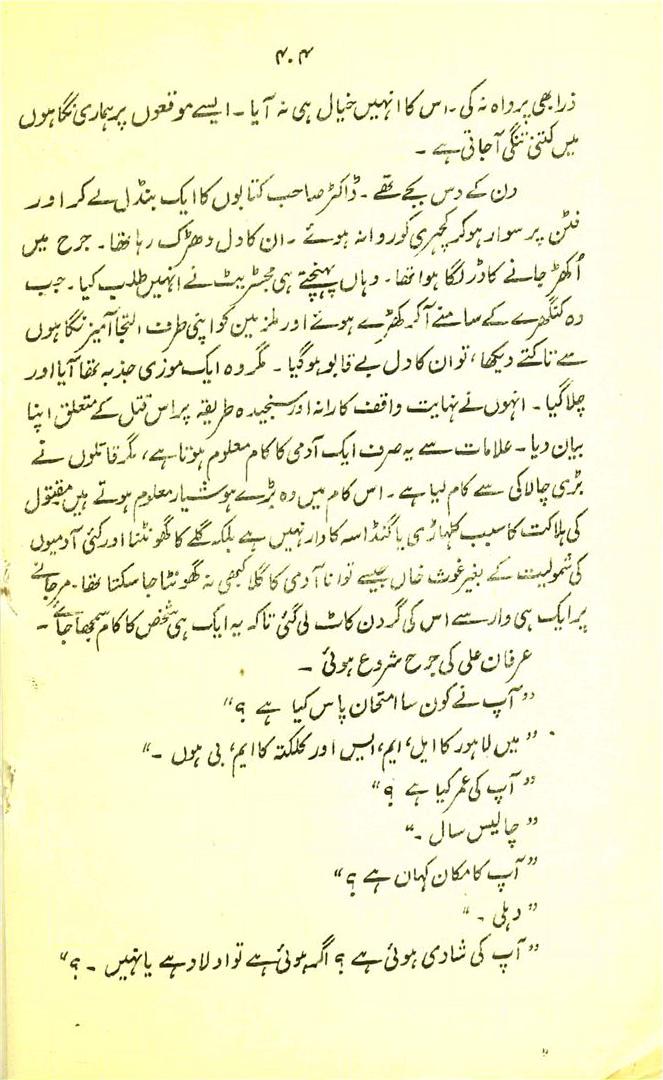 ۴۰۴
ذرا بھی پرواہ نہ کی۔ اس کا انہیں خیال ہی نہ آیا۔ ایسے موقعوں پر ہماری نگاہوں
میں کتنی تنگی آجاتی ہے۔
دن کے دس بجے تھے۔ ڈاکٹر صاحب کتابوں کا ایک بنڈل لے کر اور
فٹن پر سوار ہو کر کچہری کو روانہ ہوئے۔ ان کا دل دھڑک رہا تھا۔ جرح میں
اُکھڑ جانے کا ڈر لگا ہوا تھا۔ وہاں پہنچتے ہی مجسٹریٹ نے انہیں طلب کیا۔ جب
وہ کٹگھرے کے سامنے آکر کھڑے ہوئے اور ملزمین کو اپنی طرف التجا آمیز نگاہوں
سے تاکتے دیکھا، تو ان کا دل بے قابو ہو گیا۔ مگر وہ ایک موزی جذبہ تھا آیا اور
چلا گیا۔ انہوں نے نہایت واقف کارانہ اور سنجیدہ طریقہ پر اس قتل کے متعلق اپنا
بیان دیا۔ علامات سے یہ صرف ایک آدمی کا کام معلوم ہوتا ہے، مگر قاتلوں نے
بڑی چالاکی سے کام لیا ہے۔ اس کام میں وہ بڑے ہوشیار معلوم ہوتے ہیں مقتول
کی ہلاکت کا سبب کلہاڑی یا گنڈاسہ کا وار نہیں ہے بلکہ گلے کا گھونٹنا اور کئی آدمیوں
کی شمولیت کے بغیر غوث خاں جیسے توانا آدمی کا گلا کبھی نہ گھونٹا جا سکتا تھا۔ مرجانے
پر ایک ہی وار سے اس کی گردن کاٹ لی گئی تاکہ یہ ایک ہی شخص کا کام سمجھا جائے۔
عرفان علی کی جرح شروع ہوئی۔
”آپ نے کون سا امتحان پاس کیا ہے؟“
”میں لاہور کا ایل، ایم، ایس اور کلکتہ کا ایم، بی ہوں۔“
”آپ کی عمر کیا ہے؟“
”چالیس سال۔“
”آپ کا مکان کہاں ہے؟“
”دہلی۔“
”آپ کی شادی ہوئی ہے؟ اگر ہوئی ہے تو اولاد ہے یا نہیں۔؟“